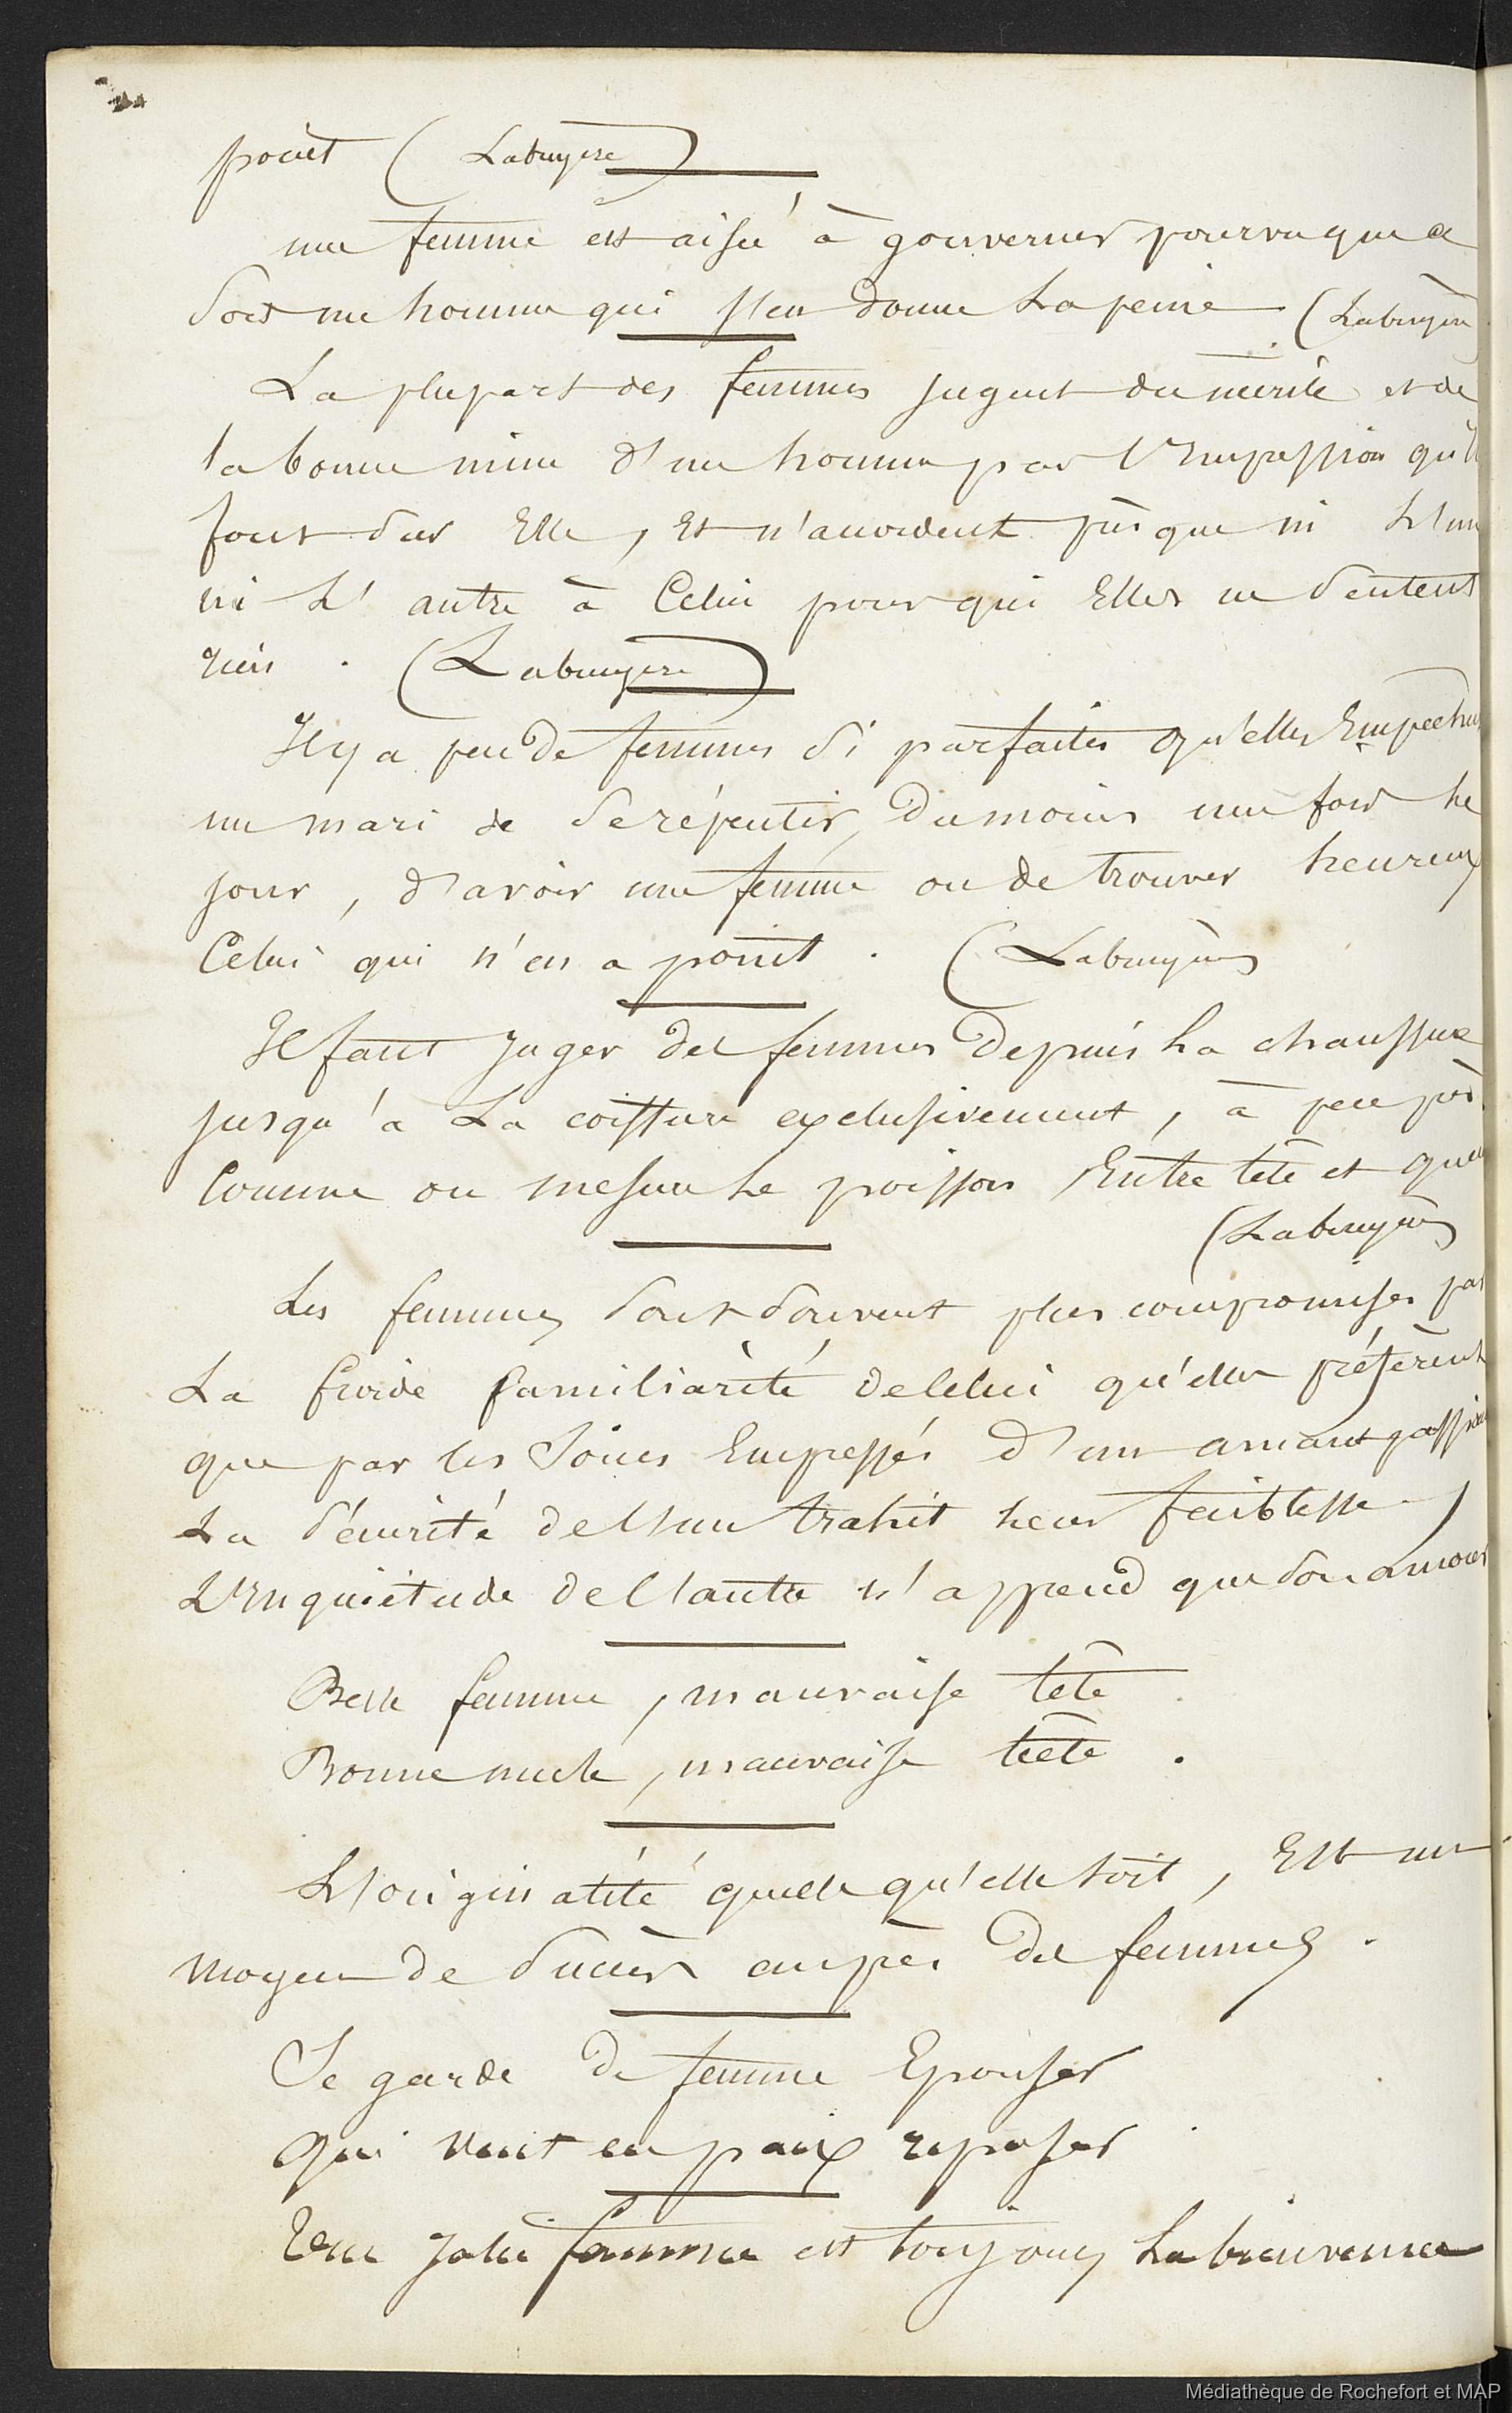 point ( Labruyere )
une femme est aisée à gouverner pourvu que ce
soit un homme qui s'en donne la peine (Labruyère
La plupart des femmes jugent du mérite et de
la bonne mine d'un homme par l'Impression qu'ils
font sur Elle, Et n'accordent presque ni L'un
ni L'autre à Celui pour qui Elles ne sentent
rien . (Labruyere)
Il y a peu de femmes si parfaites qu'elles Empechent
un mari de se répentir, du moins une fois le
jour, d'avoir une femme ou de trouver heureux
Celui qui n'en a point . (Labruyère)
Il faut juger des femmes depuis la chaussure
jusqu'a La coiffure exclusivement, à peu près
Comme on mesure le poisson Entre tête et queue
(Labruyère)
Les femmes sont souvent plus compromises par
La froide familiarité de Celui qu'elles préfèrent
que par les Soins Empressés d'un amant passionné
La sécurité de l'un trahit leur faiblesse,
L'Inquiétude de l'autre n'apprend que son amour
Belle femme, mauvaise tête.
Bonne mule, mauvaise tête .
L'originalité quelle qu'elle soit, Est un
moyen de succès auprès des femmes .
Se garde de femme Epouser
Qui veut en paix reposer
Une Jolie femme est toujours La bienvenue
Médiathèque de Rochefort et MAP